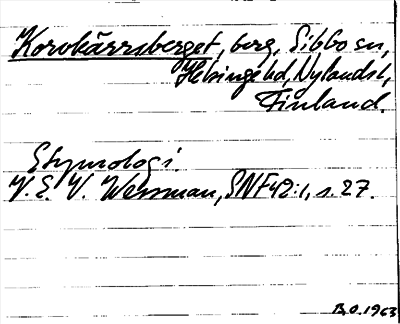 Korokärrsberget, berg, Sibbo sn,
Helsinge hd, Nylands l,
Finland.
Etymologi.
V. E. V. Wessman, SNF 42:1, s. 27.
B.O. 1963